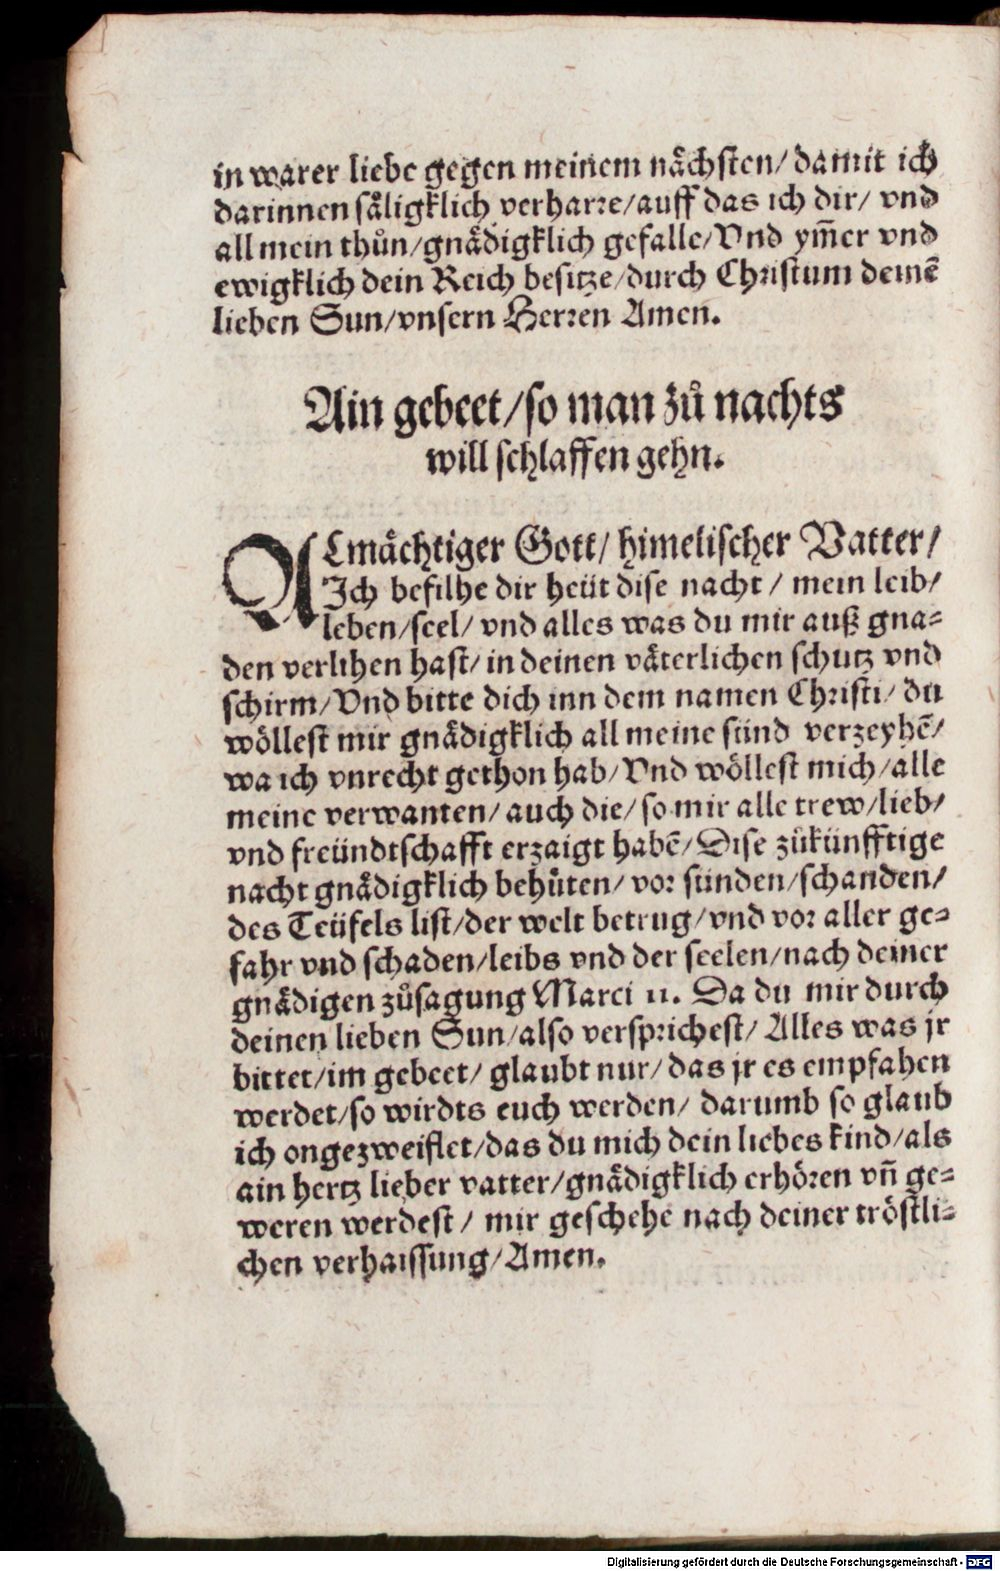 in warer liebe gegen meinem nåchsten/ damit ich
darinnen såligklich verharre/auff das ich dir/ vnd
all mein thůn/gnådigklich gefalle/Vnd ym̃er vnd
ewigklich dein Reich besitze/durch Christum deinẽ
lieben Sun/vnsern Herren Amen.
Ain gebeet/so man zů nachts
will schlaffen gehn.
ALmåchtiger Gott/ himelischer Vatter/
Ich befilhe dir heüt dise nacht / mein leib/
leben/seel/ vnd alles was du mir auß gna-
den verlihen hast/ in deinen våterlichen schutz vnd
schirm/Vnd bitte dich inn dem namen Christi/ du
wöllest mir gnådigklich all meine sünd verzeyhẽ/
wa ich vnrecht gethon hab/Vnd wöllest mich/alle
meine verwanten/ auch die/ so mir alle trew/lieb/
vnd freündtschafft erzaigt habẽ/Dise zůkünfftige
nacht gnådigklich behüten/ vor sünden/schanden/
des Teüfels list/der welt betrug/vnd vor aller ge-
fahr vnd schaden/leibs vnd der seelen/nach deiner
gnådigen zůsagung Marci 11. Da du mir durch
deinen lieben Sun/also versprichest/ Alles was jr
bittet/im gebeet/ glaubt nur/ das jr es empfahen
werdet/so wirdts euch werden/ darumb so glaub
ich ongezweiflet/das du mich dein liebes kind/als
ain hertz lieber vatter/gnådigklich erhören vñ ge-
weren werdest / mir geschehe nach deiner tröstli-
chen verhaissung/Amen.
Digitalisierung gefördert durch die Deutsche Forschungsgemeinschaft - DFG